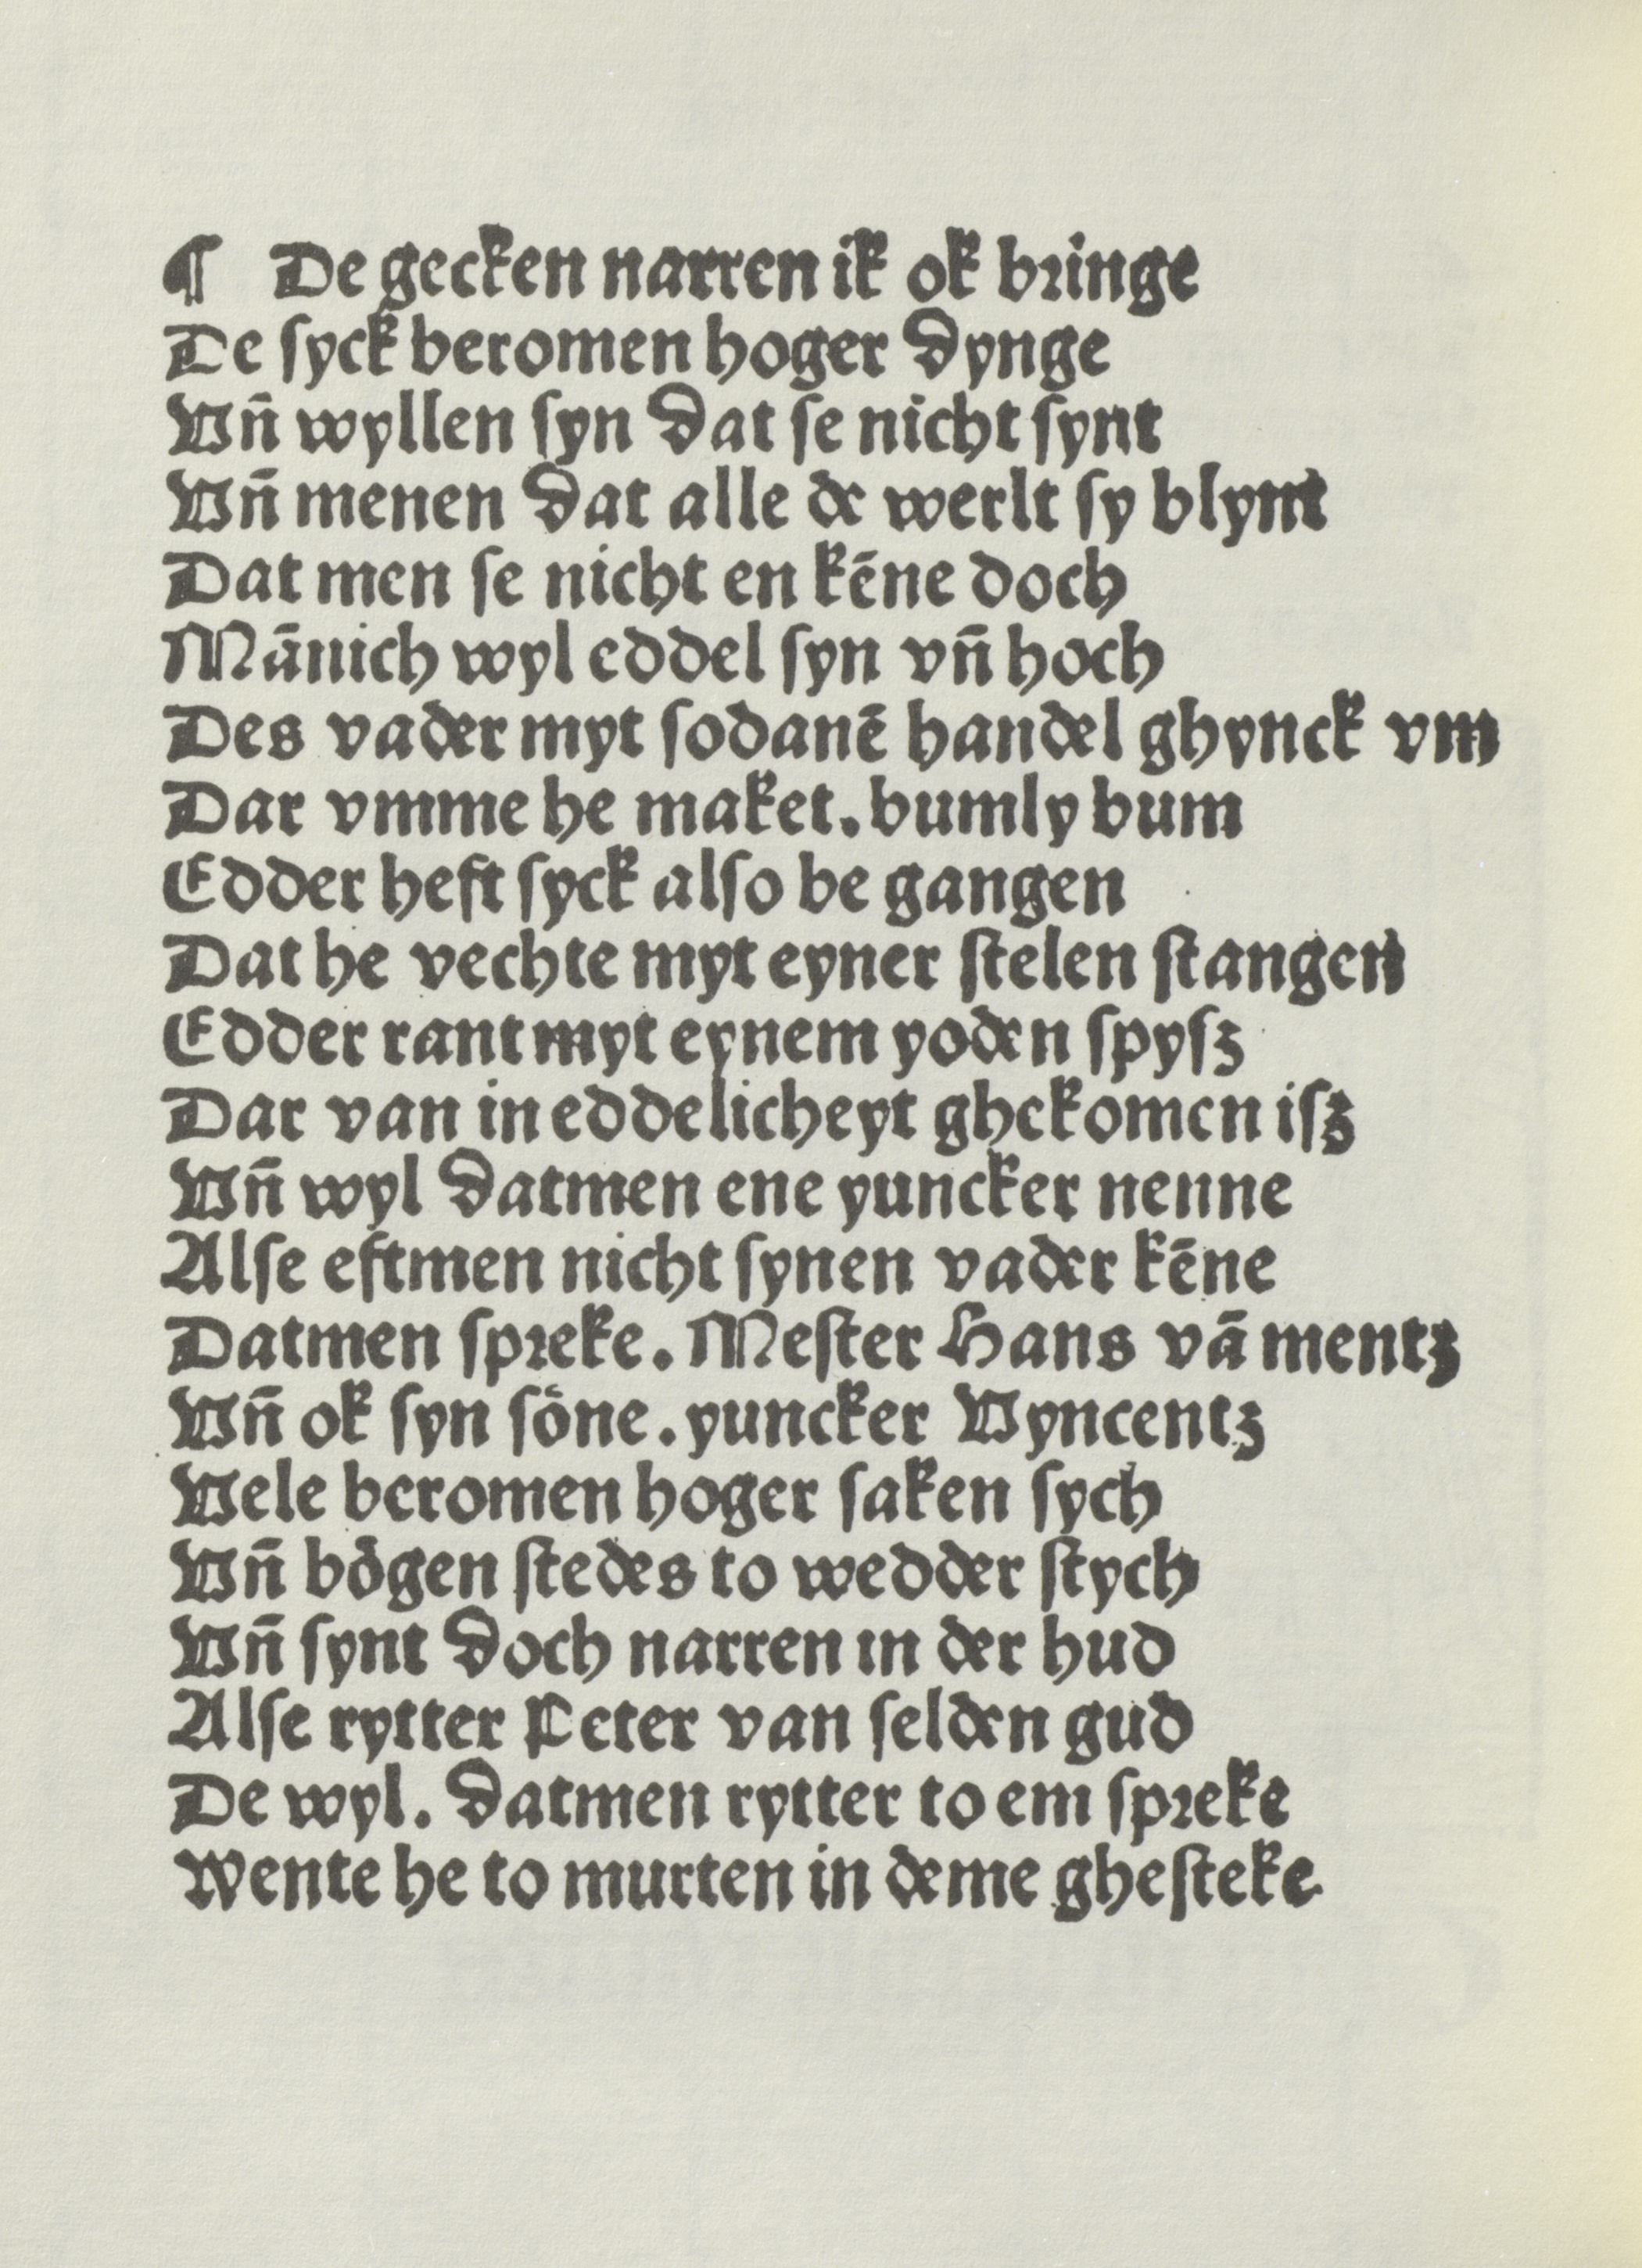 ¶ De gecken narren ik ok bringe
De ſyck beromen hoger dynge
Vn̄ wyllen ſyn dat ſe nicht ſynt
Vn̄ menen dat alle de werlt ſy blynt
Dat men ſe nicht en kēne doch
Mānich wyl eddel ſyn vn̄ hoch
Des vader myt ſodanē handel ghynck vm
Dar vmme he maket. bumly bum
Edder heft ſyck alſo be gangen
Dat he vechte myt eyner ſtelen ſtangen
Edder rant myt eynem yoden ſpyſz
Dar van in eddelicheyt ghekomen iſz
Vn̄ wyl datmen ene yuncker nenne
Alſe eftmen nicht ſynen vader kēne
Datmen ſpreke. Meſter Hans vā mentz
Vn̄ ok ſyn ſoͤne. yuncker Vyncentz
Vele beromen hoger ſaken ſych
Vn̄ boͤgen ſtedes to wedder ſtych
Vn̄ ſynt doch narren in der hud
Alſe rytter Peter van ſelden gud
De wyl. datmen rytter to em ſpreke
Wente he to murten in deme gheſteke